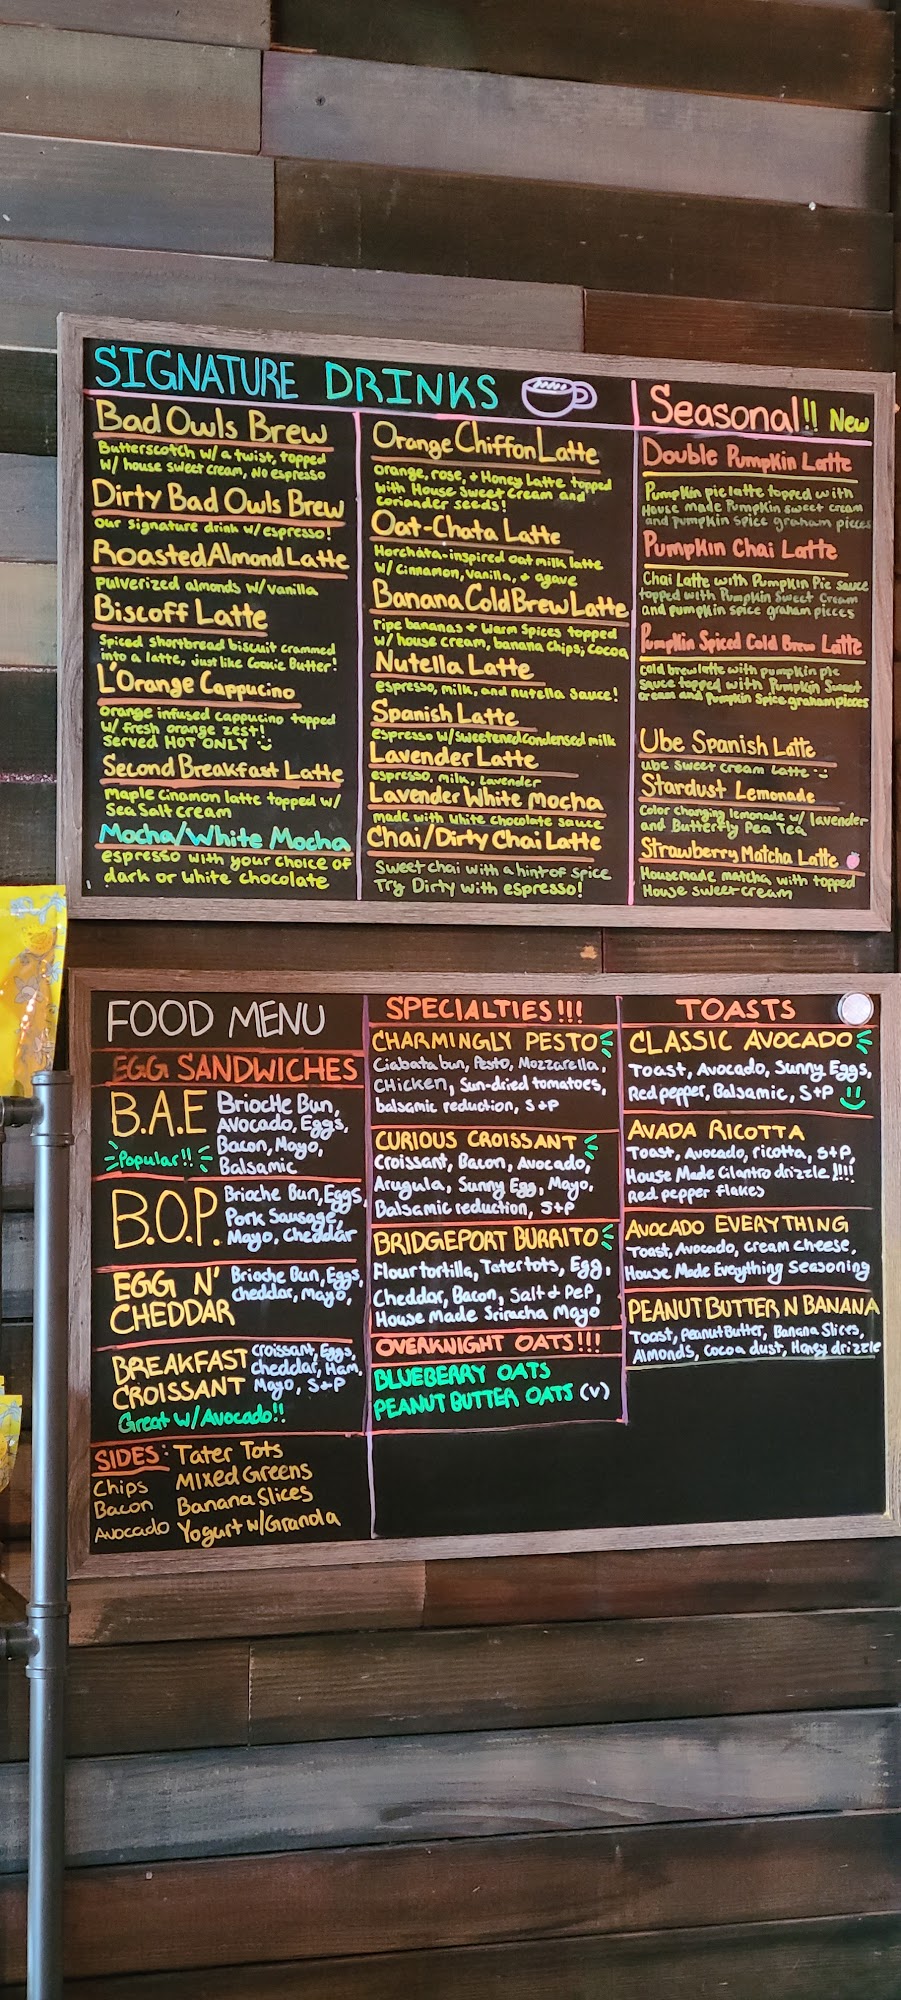 SIGNATURE DRINKS
Bad Owls Brew
Butterscotch w/ a twist, topped
w/ house sweet cream, No espresso
Dirty Bad Owls Brew
our signature drink w/ espresso!
Roasted Almond Latte
Pulverized almonds w/ vanilla
Biscoff Latte
Spiced shortbread biscuit crammed
into a latte, just like Cookie Butter!
L'Orange Cappucino
orange infused cappucino topped
w/ fresh orange zest!
Served HOT ONLY
Second Breakfast Latte
Maple Cinamon latte topped w/
Sea Salt cream
Mocha/White Mocha
espresso with your choice of
dark or white chocolate
Orange Chiffon Latte
orange, rose, + Honey Latte topped
with House Sweet Cream and
coriander seeds!
Oat-Chata Latte
Horchata-inspired oat milk latte
w/ cinnamon, vanilla, + agave
Banana Cold Brew Latte
ripe bananas + warm spices topped
w/ house cream, banana chips, cocoa
Nutella Latte
espresso, milk, and nutella sauce!
Spanish Latte
espresso w/ sweetened condensed milk
Lavender Latte
espresso, milk, lavender
Lavender White mocha
made with white chocolate sauce
Chai/Dirty Chai Latte
Sweet chai with a hint of spice
Try Dirty with espresso!
Seasonal!! New
Double Pumpkin Latte
Pumpkin pie latte topped with
House made Pumpkin sweet cream
and pumpkin spice graham pieces
Pumpkin Chai Latte
Chai Latte with Pumpkin Pie sauce
topped with Pumpkin Sweet Cream
and pumpkin spice graham pieces
Pumpkin Spiced Cold Brew Latte
cold brew latte with pumpkin pie
sauce topped with Pumpkin Sweet
cream and pumpkin spice graham pieces
Ube Spanish Latte
ube sweet cream latte
Stardust Lemonade
Color changing lemonade w/ lavender
and Butterfly Pea Tea
Strawberry Matcha Latte
Housemade matcha with topped
House sweet cream
FOOD MENU
EGG SANDWICHES
B.A.E
Brioche Bun,
Avocado, Eggs,
Bacon, Mayo,
Balsamic
Popular!!
B.O.P.
Brioche Bun, Eggs,
Pork Sausage,
Mayo, cheddar
EGG N'
CHEDDAR
Brioche Bun, Eggs,
Cheddar, Mayo,
BREAKFAST
CROISSANT
croissant, Eggs,
cheddar, Ham,
Mayo, S+P
Great w/ Avocado!!
SIDES: Tater Tots
Chips Mixed Greens
Bacon Banana Slices
Avocado Yogurt w/ Granola
SPECIALTIES!!!
CHARMINGLY PESTO
Ciabata bun, Pesto, Mozzarella,
CHicken, Sun-dried tomatoes,
balsamic reduction, S+P
CURIOUS CROISSANT
Croissant, Bacon, Avocado,
Arugula, Sunny Egg, Mayo,
Balsamic reduction, S+P
BRIDGEPORT BURRITO
Flour tortilla, Tater tots, Egg,
Cheddar, Bacon, Salt + PeP,
House Made Sriracha Mayo
OVERKNIGHT OATS!!!
BLUEBERRY OATS
PEANUT BUTTER OATS (V)
TOASTS
CLASSIC AVOCADO
Toast, Avocado, Sunny Eggs,
Red pepper, Balsamic, S+P
AVADA RICOTTA
Toast, Avocado, ricotta, S+P,
House Made Cilantro drizzle!!!!
Red pepper flakes
AVOCADO EVERYTHING
Toast, Avocado, cream cheese,
House Made Everything Seasoning
PEANUT BUTTER N BANANA
Toast, Peanut Butter, Banana Slices,
Almonds, Cocoa dust, Honey drizzle